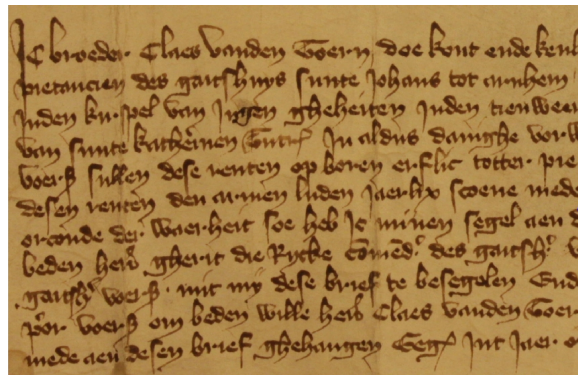 Ic broeder Claes vanden Goern doe kont ende kenl
pietancien des gaitshuys sunte Johans tot arnhem
Inden kirspel van Ingen gheheiten Inden tienweer
van sunte kathẻrinen In aldus danighe vorw
voerß sullen dese renten op boren erflic totter pie
desen renten den armen luden Jaerlix scoene mede
orconde der waerheit soe heb Ic minen segel aen d
beden heren gherit die Rycke Comẻd' des gaitsh'
gaitsh' voerß mit my dese brief te besegelen Ende
p'or voerß om beden wille heren Claes vanden Goer
mede aen desen brief ghehangen Geg' Int Jaer o